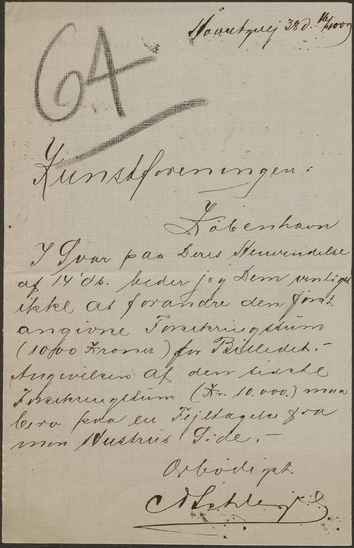 64
38 d.
Kunstforeningen.
København
I Svar paa Deres Henvendelse
af 14 ds. beder jeg Dem venligst
ikke at forandre den først
angivne Forsikringssum
(10,00 Kroner) for Billedet.-
Angivelsen af den sidste
Forsikringssum (Kr. 10.000.) maa
bero paa en Fejltagelse fra
min Hustrus Side.-
Ærbødigst